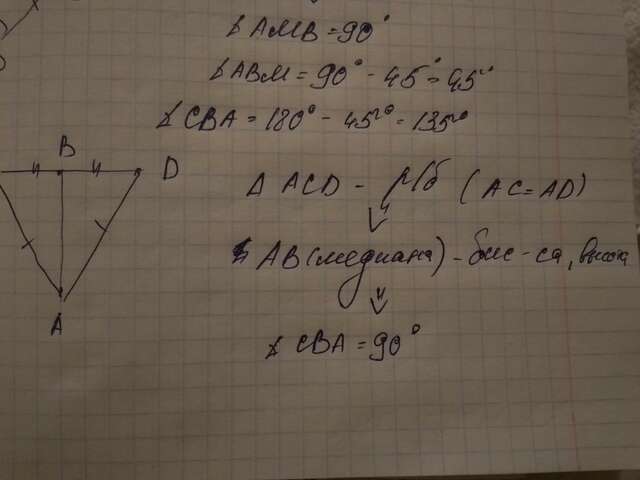 ∡AMB = 90°
∡ABM = 90° - 45° = 45°
∡CBA = 180° - 45° = 135°
B
D
A
Δ ACD - р/б (AC = AD)
∡ AB (медиана) - бис-са, высота
∡ CBA = 90°